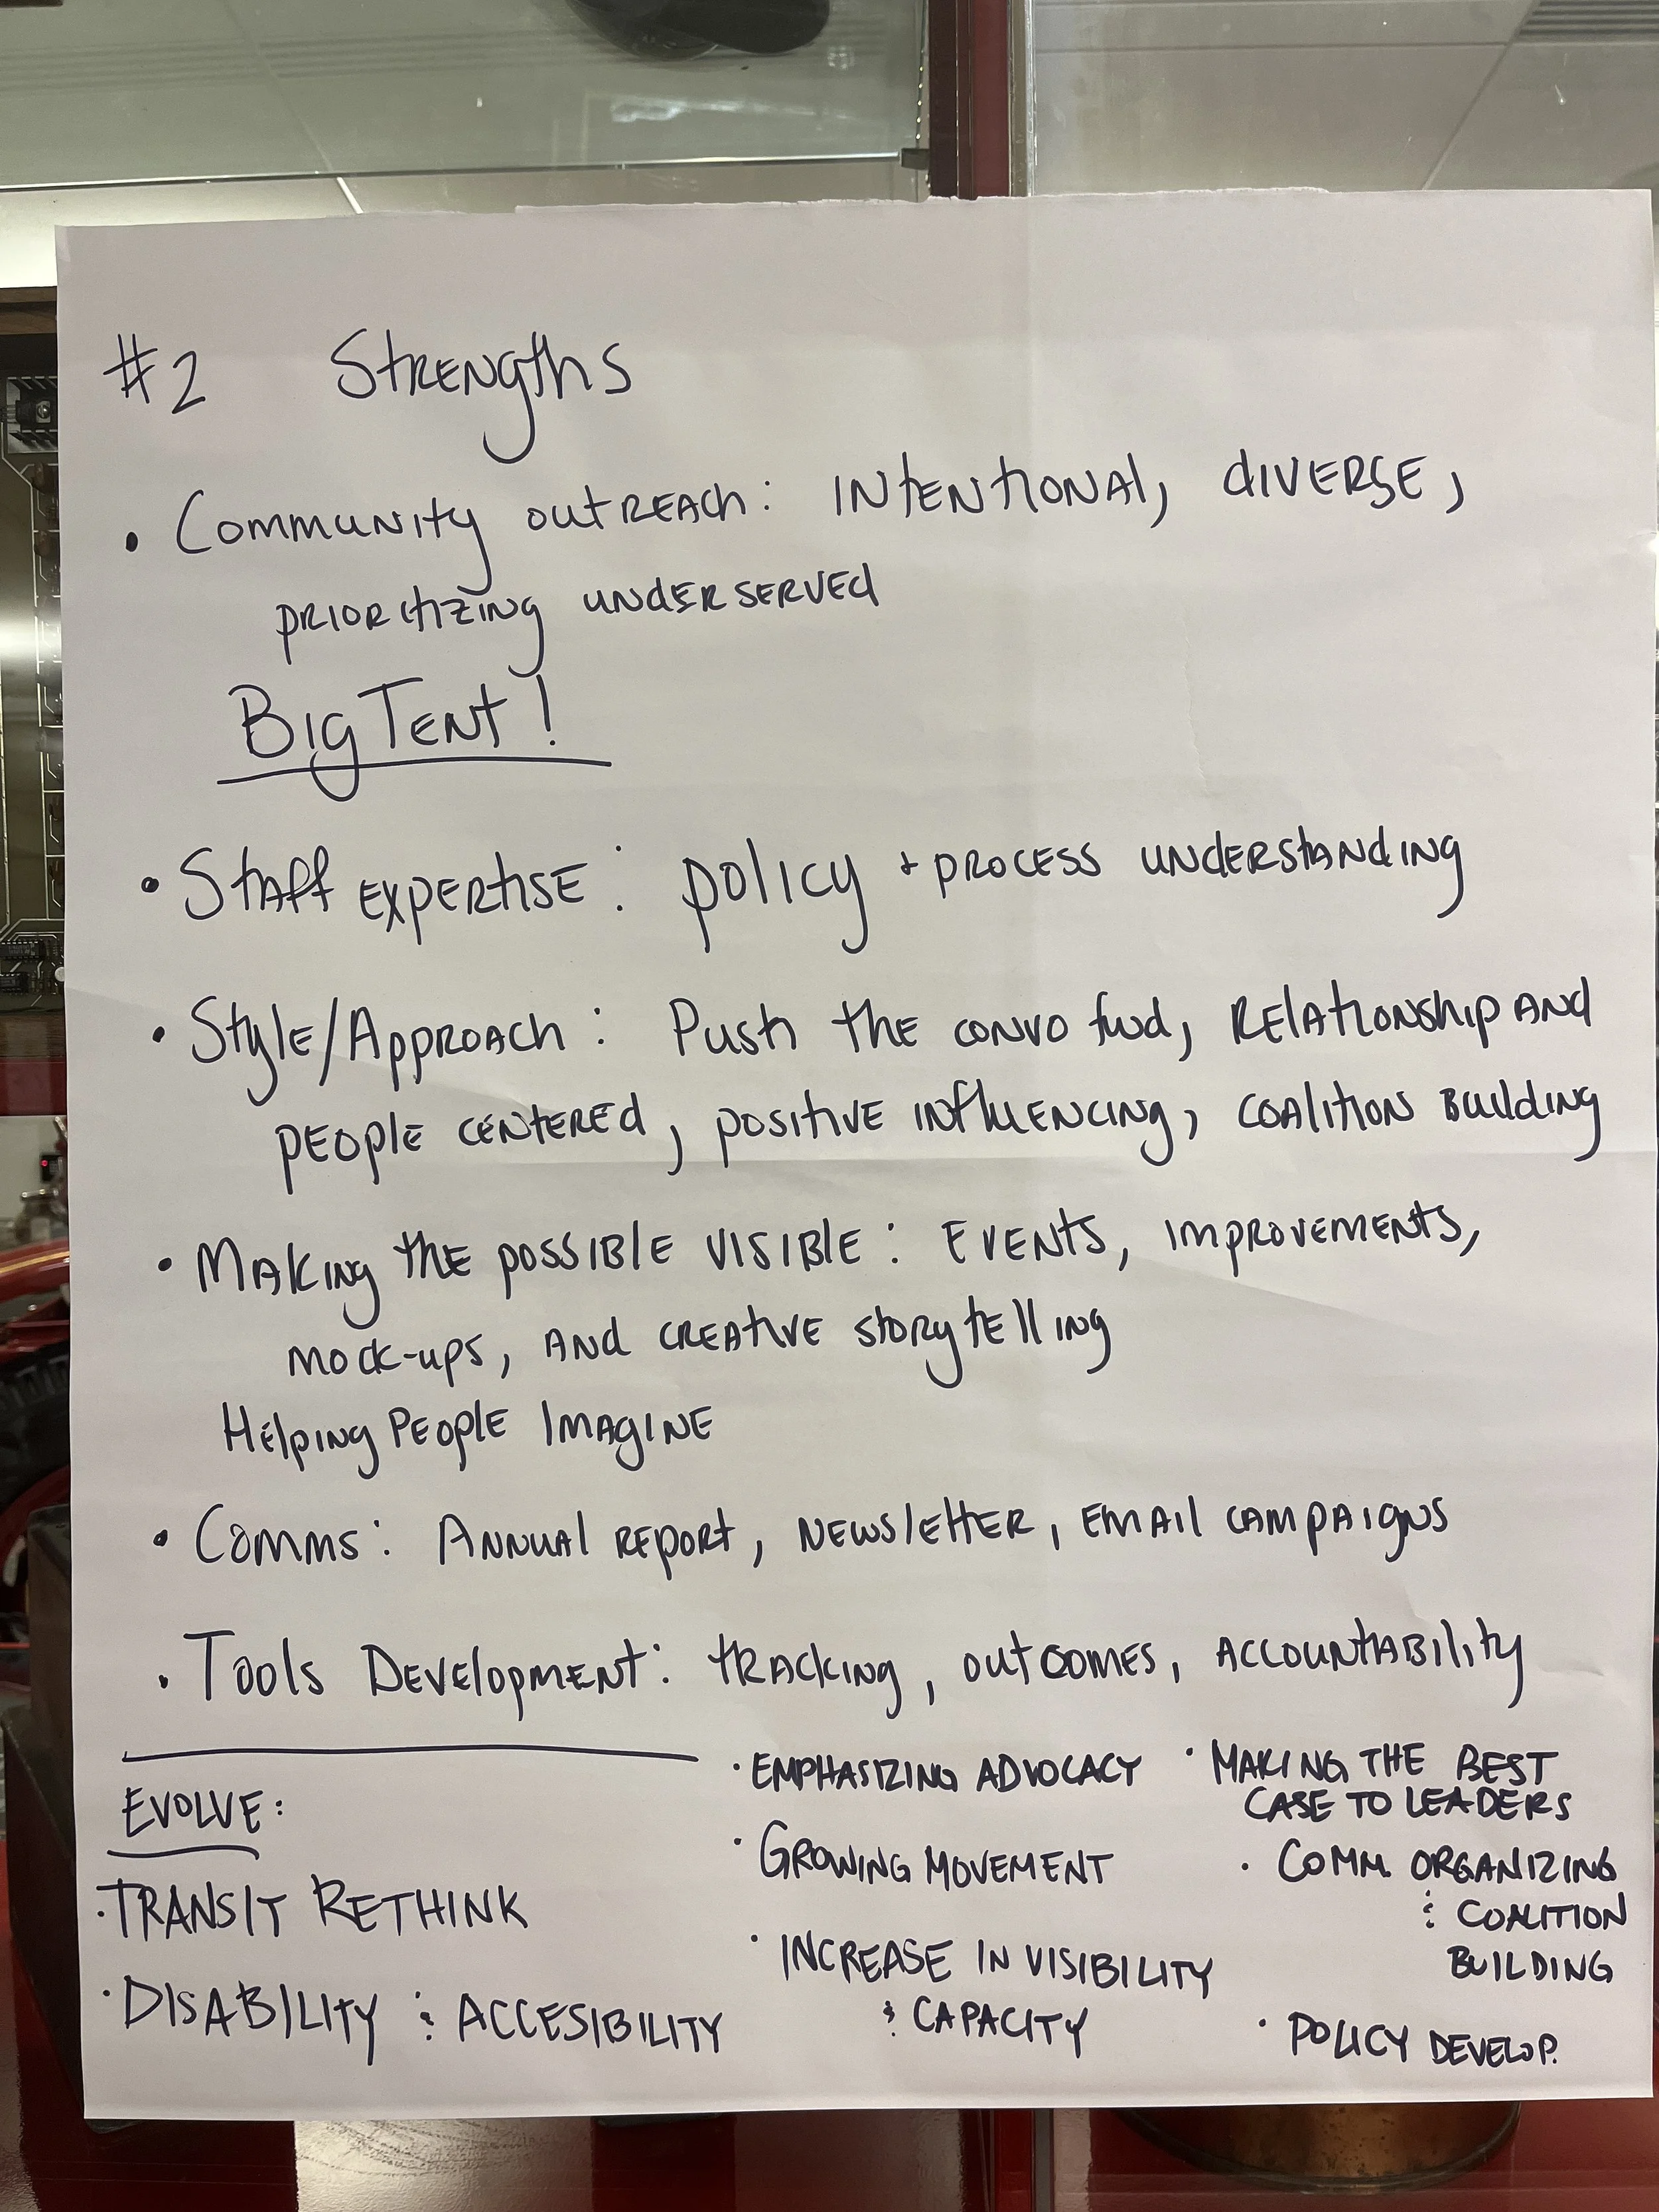 #2 Strengths
• Community outreach: intentional, diverse,
prioritizing underserved
Big Tent!
• Staff expertise: policy + process understanding
• Style/Approach: Push the convo fwd, relationship and
people centered, positive influencing, coalition building
• Making the possible visible: Events, improvements,
mock-ups, and creative storytelling
Helping People Imagine
• Comms: Annual report, newsletter, email campaigns
• Tools Development: tracking, outcomes, accountability
EVOLVE:
• TRANSIT RETHINK
• DISABILITY & ACCESIBILITY
• EMPHASIZING ADVOCACY
• GROWING MOVEMENT
• INCREASE IN VISIBILITY
& CAPACITY
• MAKING THE BEST
CASE TO LEADERS
• COMM. ORGANIZING
& COALITION
BUILDING
• POLICY DEVELOP.